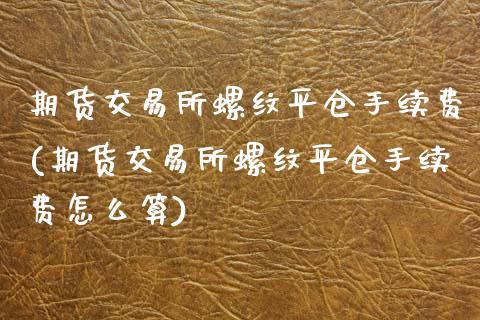 期货交易所螺纹平仓手续费
(期货交易所螺纹平仓手续
费怎么算)